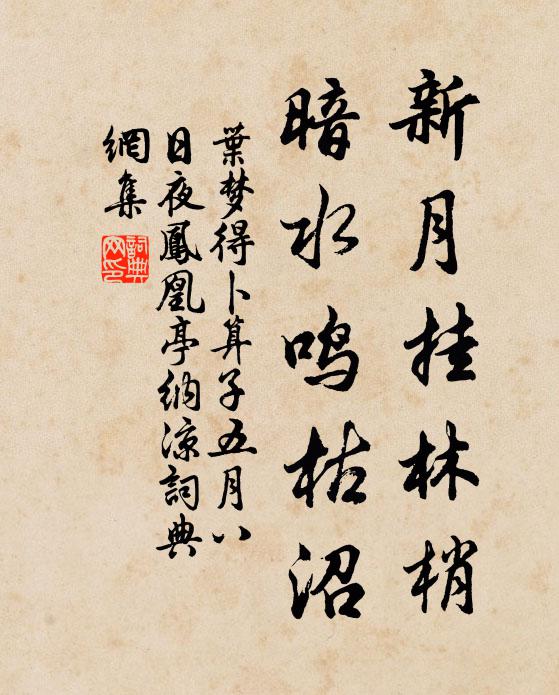 新月挂林梢
暗水鸣枯沼
葉梦得卜算子五月八
日夜鳳凰亭納涼詞典
網集
詞典
网印